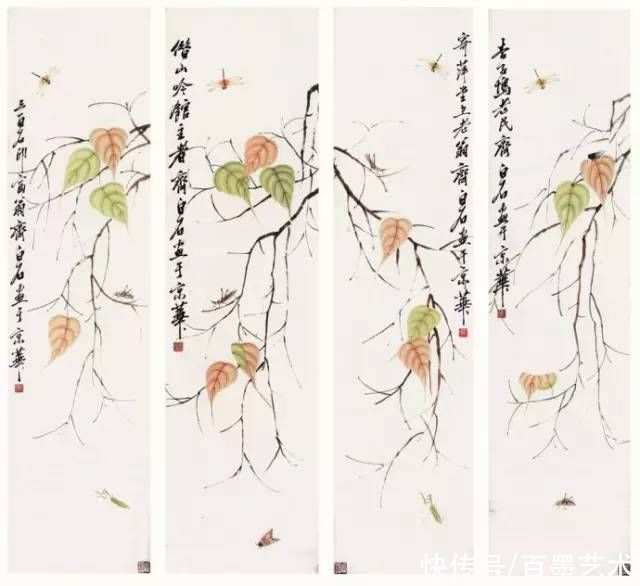 杏子塢老民齊白石畫于京華
寄萍堂上老翁齊白石畫于京華
借山吟館主者齊白石畫于京華
三百石印富翁齊白石畫于京華
快传号/百墨艺术